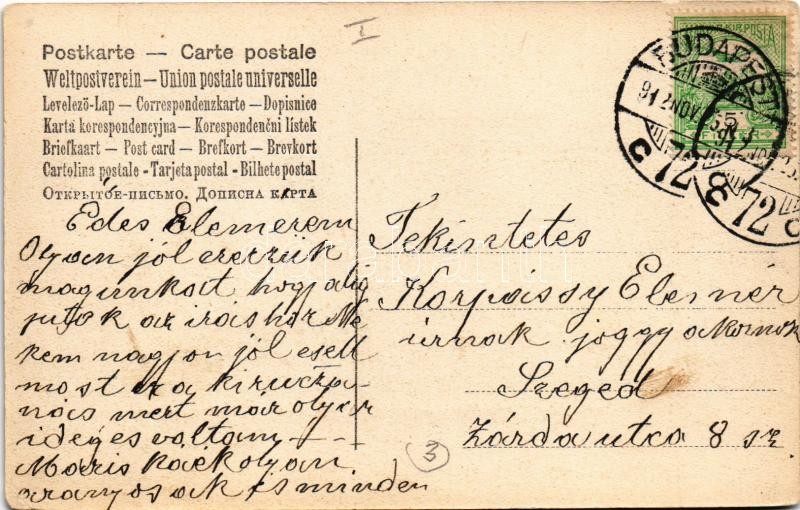 Postkarte — Carte postale
Weltpostverein — Union postale universelle
Levelező-Lap — Correspondenzkarte — Dopisnice
Karta korespondencyjna — Korespondenční lístek
Briefkaart — Post card — Brefkort — Brevkort
Cartolina postale - Tarjeta postal - Bilhete postal
Открытое-письмо. Дописна карта
I
BUDAPEST
912 NOV
72
Édes Elemérem
Olyan jól érezzük
magunkat hogy alig
jutok az iráshoz Ne
kem nagyon jól esett
most ez a kiruczza-
nás mert már olyan
ideges voltam — —
Máris
aranyosak és minden
Tekintetes
Korpássy Elemér
úrnak joggyakornok
Szeged
Zárda utca 8 sz.
3